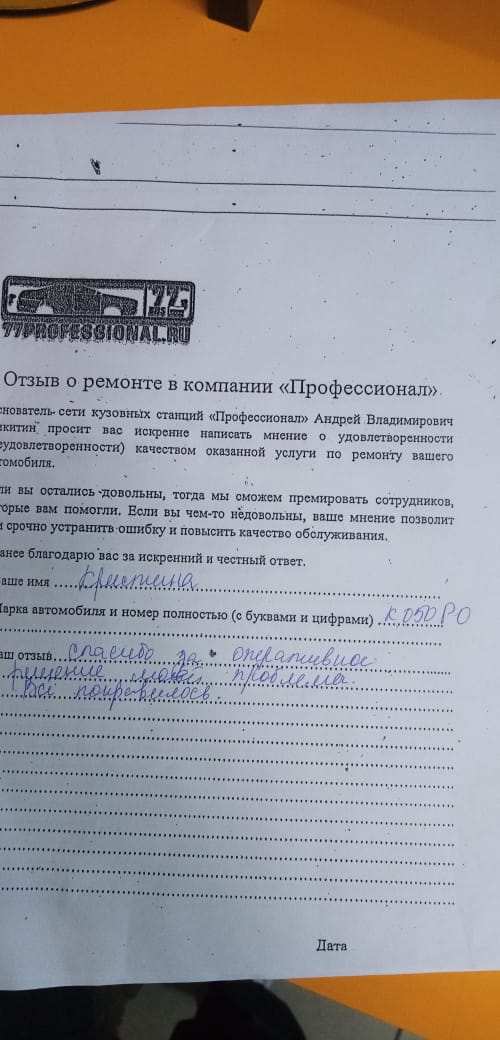 77
RUS
77PROFESSIONAL.RU
Отзыв о ремонте в компании «Профессионал»
снователь сети кузовных станций «Профессионал» Андрей Владимирович
икитин просит вас искренне написать мнение о удовлетворенности
еудовлетворенности) качеством оказанной услуги по ремонту вашего
томобиля.
ли вы остались довольны, тогда мы сможем премировать сотрудников,
торые вам помогли. Если вы чем-то недовольны, ваше мнение позволит
м срочно устранить ошибку и повысить качество обслуживания.
анее благодарю вас за искренний и честный ответ.
аше имя Кристина
Марка автомобиля и номер полностью (с буквами и цифрами) К050РО
аш отзыв Спасибо за оперативное
решение моей проблемы.
Всё понравилось.
Дата